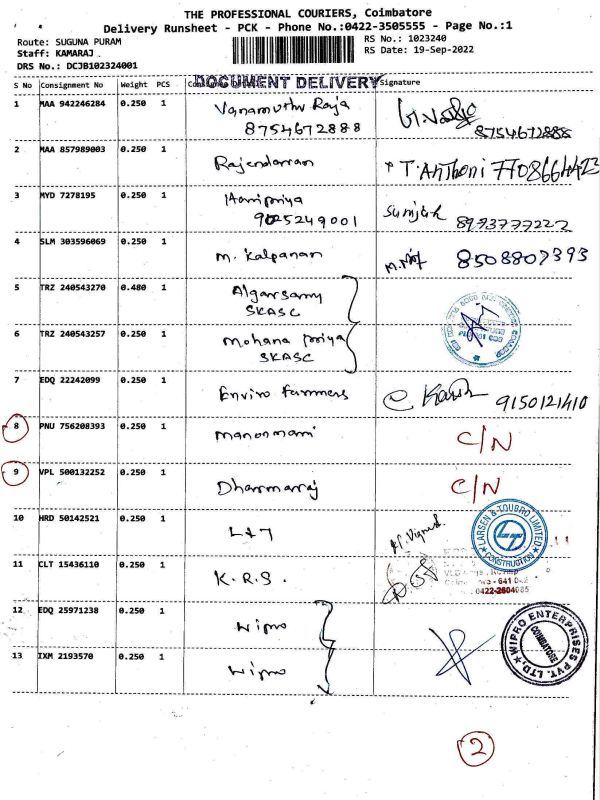 THE PROFESSIONAL COURIERS, Coimbatore
Delivery Runsheet - PCK - Phone No.:0422-3505555 - Page No.:1
Route: SUGUNA PURAM
RS No.: 1023240
Staff: KAMARAJ
RS Date: 19-Sep-2022
DRS No.: DCJB102324001
DOCUMENT DELIVERY
S No Consignment No Weight PCS Signature
1 MAA 942246284 0.250 1 Vanamuthu Raja
8754672888 8754672888
2 MAA 857989003 0.250 1 Rajendarran T. Anthoni 7708664423
3 MYD 7278195 0.250 1 Haripriya
9025249001 8973777222
4 SLM 303596069 0.250 1 M. Kalpanan 8508807393
5 TRZ 240543270 0.480 1 Algarsamy
SKASC
6 TRZ 240543257 0.250 1 Mohana Priya
SKASC
7 EDQ 22242099 0.250 1 Enviro Farmers 9150121410
8 PNU 756208393 0.250 1 Manonmani C/N
9 VPL 500132252 0.250 1 Dharmarraj C/N
10 HRD 50142521 0.250 1 L&T
LARSEN & TOUBRO LIMITED
CONSTRUCTION
11 CLT 15436110 0.250 1 K.R.S.
0422-2604085
12 EDQ 25971238 0.250 1 Wipro
13 IXM 2193570 0.250 1 Wipro
WIPRO ENTERPRISES PVT. LTD.
COIMBATORE
2